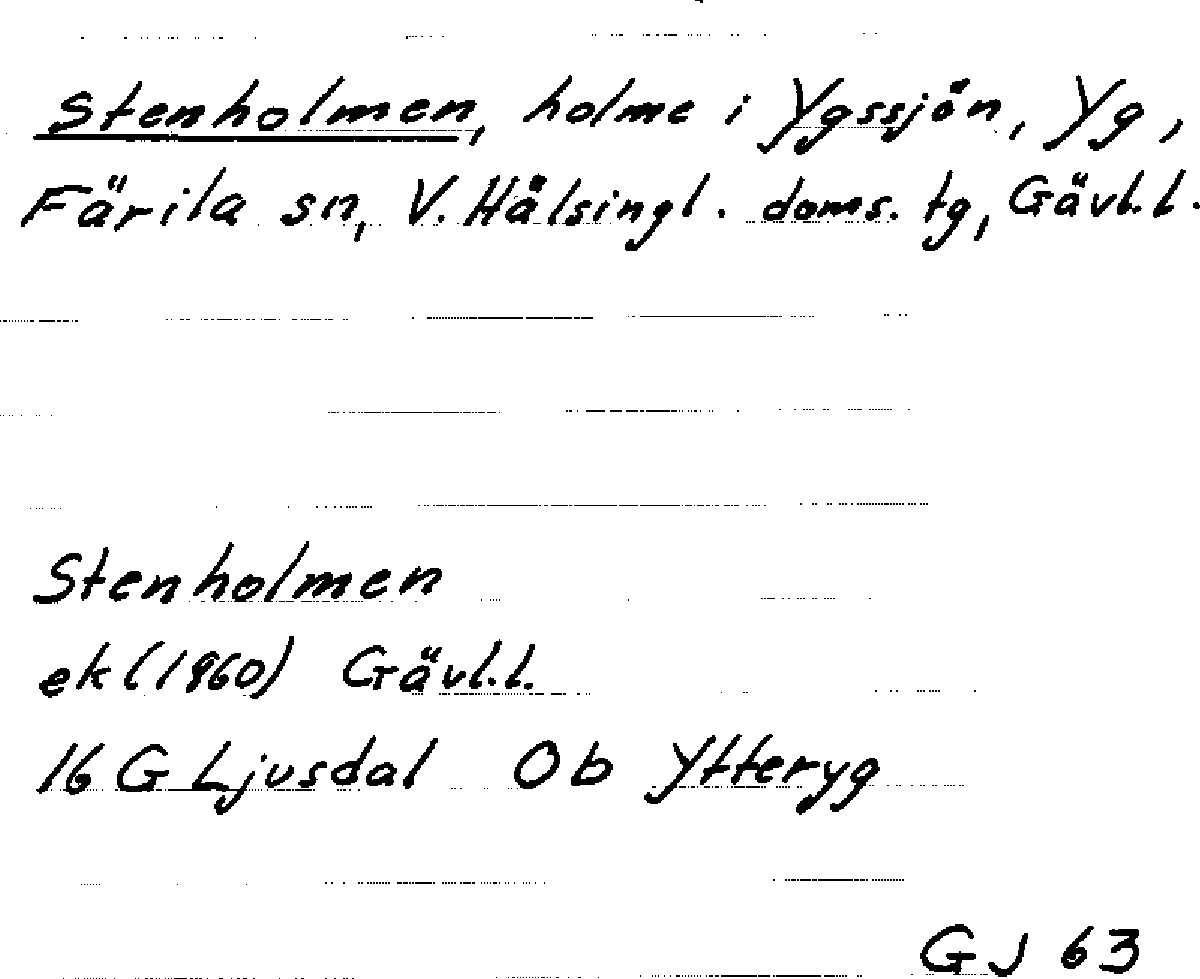 Stenholmen, holme i Ygssjön, Yg,
Färila sn, V. Hälsingl. doms. tg, Gävl.l.
Stenholmen
ek (1960) Gävl.l.
16 G Ljusdal 0b Ytteryg
GJ 63